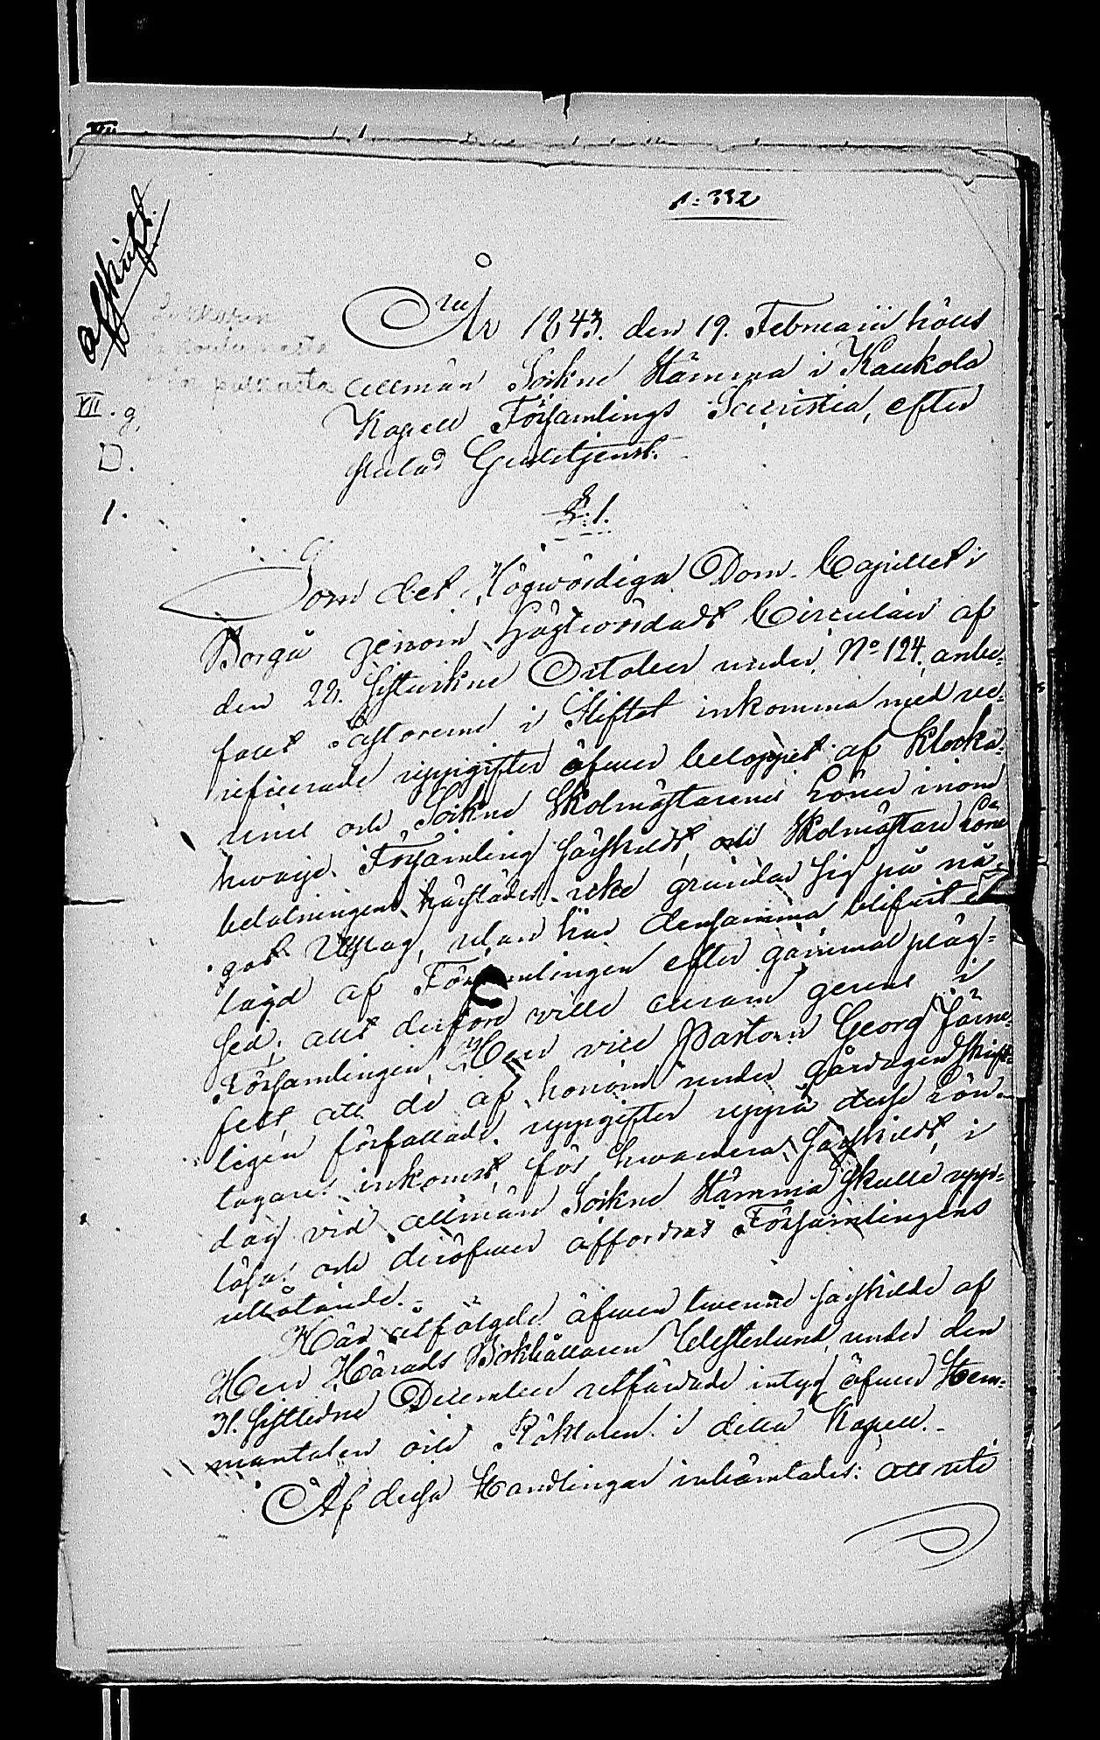 1:332
Afskrift.
VII. g.
D.
1.
År 1843. den 19. Februarii hölls
allmän Sockne Stämma i Kaukola
Kapell Församlings Sacristia, efter
slutad Gudstjenst.
§. 1.
Som det Högwördiga Dom-Capitlet i
Borgå genom Högwördadt Circulair af
den 22. sistwikne October under No 124, anbe-
fallt Pastorerne i Stiftet inkomma med ve-
rificerade uppgifter öfwer beloppet af Klocka-
rens och Sockne Skolmästarens Löner inom
hwarje Församling särskildt, och Skolmästare Löne
betalningen härstädes icke grundar sig på nå-
got Utslag, utan har densamma blifwit
lagd af Församlingen efter gammal pläg-
sed; allt derföre wille
Församlingen, Herr vice Pastorn Georg Järne-
felt, att de af honom under gårdagen skrift-
ligen författade uppgifter uppå desse Lön-
tagares inkomst, för hwardera särskildt, i
dag vid allmän Sockne Stämma skulle upp-
läsas och deröfwer affordras Församlingens
utlåtande.-
Här åtföljde äfwen twenne särskilde af
Herr Härads Bokhållaren Westerlund under den
31. sistledne December utfärdade intyg öfwer Hem-
mantalen och Röktalen i detta Kapell.-
Af dessa Handlingar inhämtades: att